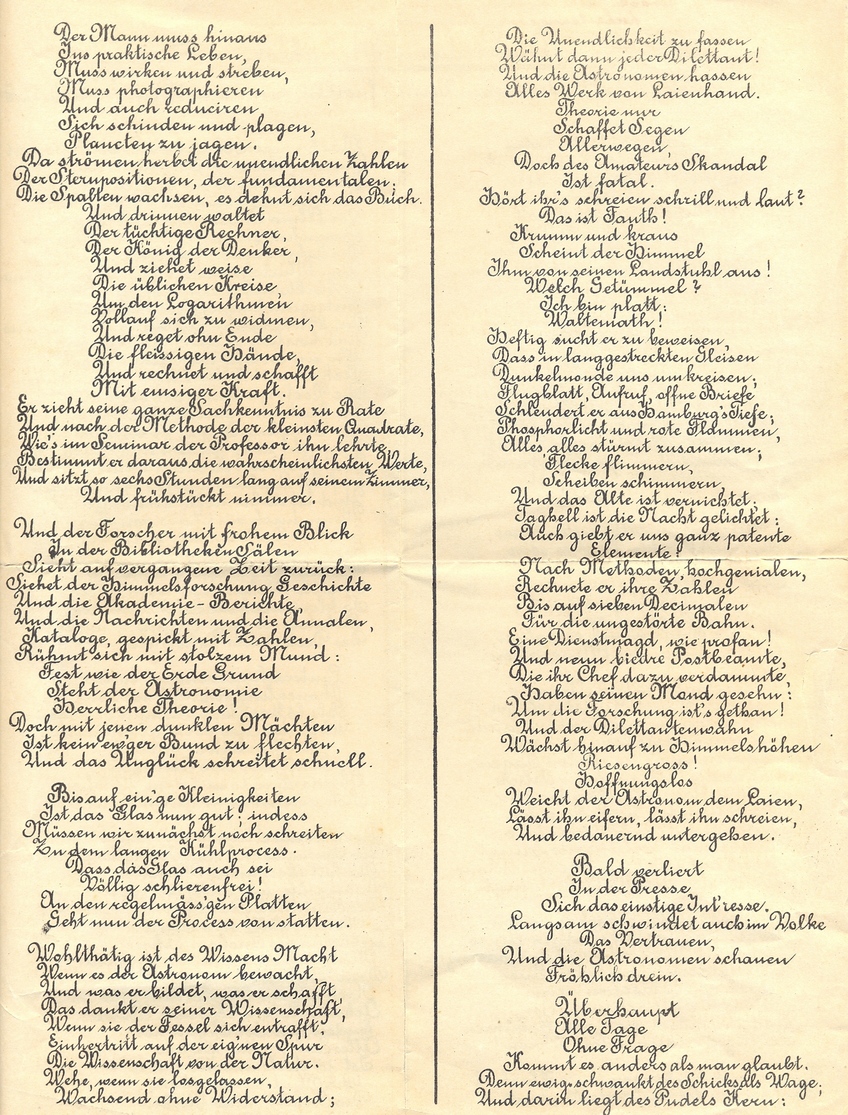 Der Mann muss hinaus
Ins praktische Leben,
Muss wirken und streben,
Muss photographieren
Und auch reduciren
Sich schinden und plagen,
Planeten zu jagen.
Da strömen herbei die unendlichen Zahlen
Der Sternpositionen, der fundamentalen;
Die Spalten wachsen, es dehnt sich das Buch.
Und drinnen waltet
Der tüchtige Rechner,
Der König der Denker,
Und ziehet weise
Die üblichen Kreise,
Um den Logarithmen
Vollauf sich zu widmen,
Und reget ohn Ende
Die fleissigen Hände,
Und rechnet und schafft
Mit emsiger Kraft.
Er zieht seine ganze Sachkenntnis zu Rate
Und nach der Methode der kleinsten Quadrate,
Wie's im Seminar der Professor ihn lehrte,
Bestimmt er daraus die wahrscheinlichsten Werte,
Und sitzt so sechs Stunden lang auf seinem Zimmer,
Und frühstückt nimmer.
Und der Forscher mit frohem Blick
In der Bibliotheken Sälen
Sieht auf vergangene Zeit zurück:
Siehet der Himmelsforschung Geschichte
Und die Akademie-Berichte,
Und die Nachrichten und die Annalen,
Kataloge, gespickt mit Zahlen,
Rühmt sich mit stolzem Mund:
Fest wie der Erde Grund
Steht der Astronomie
Herrliche Theorie!
Doch mit jenen dunklen Mächten
Ist kein ewger Bund zu flechten,
Und das Unglück schreitet schnell.
Bis auf ein'ge Kleinigkeiten
Ist das Glas nun gut; indess
Müssen wir zunächst noch schreiten
Zu dem langen Kühlprocess.
Dass das Glas auch sei
Völlig schlierenfrei!
An den regelmäss'gen Platten
Geht nun der Process von statten.
Wohlthätig ist des Wissens Macht
Wenn es der Astronom bewacht,
Und was er bildet, was er schafft
Das dankt er seiner Wissenschaft,
Wenn sie der Fessel sich entrafft,
Einhertritt auf der eig'nen Spur
Die Wissenschaft von der Natur.
Wehe, wenn sie losgelassen,
Wachsend ohne Widerstand;
Die Unendlichkeit zu fassen
Wähnt dann jeder Dilettant!
Und die Astronomen hassen
Alles Werk von Laienhand.
Theorie nur
Schaffet Segen
Allerwegen,
Doch des Amateurs Skandal
Ist fatal.
Hört ihr's schreien schrill und laut?
Das ist Fauth!
Krumm und kraus
Scheint der Himmel
Ihm von seinen Landstuhl aus!
Welch Getümmel?
Ich bin platt:
Waltemath!
Heftig sucht er zu beweisen,
Dass in langgestreckten Gleisen
Dunkelmonde uns umkreisen;
Flugblatt, Aufruf, offne Briefe
Schleudert er aus Hamburg's Tiefe;
Phosphorlicht und rote Flammen,
Alles alles stürmt zusammen;
Flecke flimmern,
Scheiben schimmern,
Und das Alte ist vernichtet;
Taghell ist die Nacht gelichtet:
Auch giebt er uns ganz patente
Elemente!
Nach Methoden, hochgenialen,
Rechnete er ihre Zahlen
Bis auf sieben Decimalen
Für die ungestörte Bahn.
Eine Dienstmagd, wie profan!
Und neun biedre Postbeamte,
Die ihr Chef dazu verdammte,
Haben seinen Mond gesehn:
Um die Forschung ist's gethan!
Und der Dilettantenwahn
Wächst hinauf zu Himmelshöhen
Riesengross!
Hoffnungslos
Weicht der Astronom dem Laien,
Lässt ihn eifern, lässt ihn schreien,
Und bedauernd untergehen.
Bald verliert
In der Presse
Sich das einstige Int'resse.
Langsam schwindet auch im Volke
Das Vertrauen,
Und die Astronomen schauen
Fröhlich drein.
Überhaupt
Alle Tage
Ohne Frage
Kommt es anders als man glaubt.
Denn ewig schwankt des Schicksals Wage;
Und darin liegt des Pudels Kern: